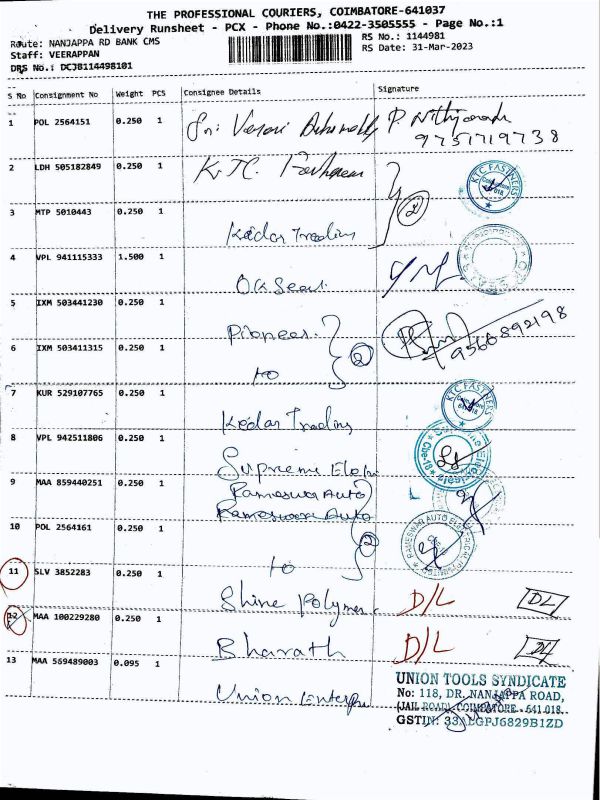 THE PROFESSIONAL COURIERS, COIMBATORE-641037
Delivery Runsheet - PCX - Phone No.:0422-3505555 - Page No.:1
Route: NANJAPPA RD BANK CMS
RS No.: 1144981
Staff: VEERAPPAN
RS Date: 31-Mar-2023
DRS No.: DCJB114498101
S No Consignment No Weight PCS Consignee Details Signature
1 POL 2564151 0.250 1
9751719738
2 LDH 505182849 0.250 1 K.TC. KTC FASTNERS
3 MTP 5010443 0.250 1 Kedar Trading 2
4 VPL 941115333 1.500 1
5 IXM 503441230 0.250 1 Pioneer
9560892198
6 IXM 503411315 0.250 1 to 2
7 KUR 529107765 0.250 1 Kedar Trading KTC FASTNERS
8 VPL 942511806 0.250 1 Supreme
9 MAA 859440251 0.250 1 Rameswar Auto
Rameswar Auto
10 POL 2564161 0.250 1 to 2 RAMESWAR AUTO
11 SLV 3852283 0.250 1 Shine Polymer D/L DL
12 MAA 100229280 0.250 1 Bharath D/L
13 MAA 569489003 0.095 1 Union Enterp
UNION TOOLS SYNDICATE
No: 118, DR. NANJAPPA ROAD,
(JAIL ROAD) COIMBATORE - 641 018.
GSTIN: 33 GPJ6829B1ZD